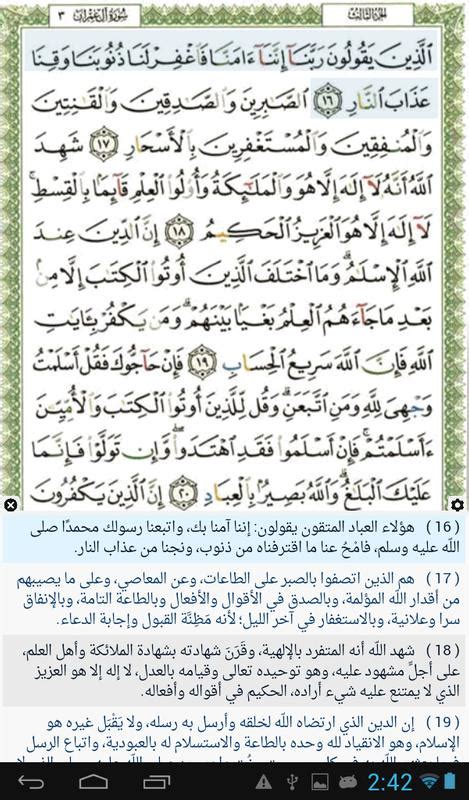 سورة آل عمران ٣
الجزء الثالث
الَّذِينَ يَقُولُونَ رَبَّنَآ إِنَّنَآ ءَامَنَّا فَٱغْفِرْ لَنَا ذُنُوبَنَا وَقِنَا
عَذَابَ ٱلنَّارِ ١٦ ٱلصَّٰبِرِينَ وَٱلصَّٰدِقِينَ وَٱلْقَٰنِتِينَ
وَٱلْمُنفِقِينَ وَٱلْمُسْتَغْفِرِينَ بِٱلْأَسْحَارِ ١٧ شَهِدَ
ٱللَّهُ أَنَّهُۥ لَآ إِلَٰهَ إِلَّا هُوَ وَٱلْمَلَٰٓئِكَةُ وَأُو۟لُوا۟ ٱلْعِلْمِ قَآئِمًۢا بِٱلْقِسْطِ ۚ
لَآ إِلَٰهَ إِلَّا هُوَ ٱلْعَزِيزُ ٱلْحَكِيمُ ١٨ إِنَّ ٱلدِّينَ عِندَ
ٱللَّهِ ٱلْإِسْلَٰمُ ۗ وَمَا ٱخْتَلَفَ ٱلَّذِينَ أُوتُوا۟ ٱلْكِتَٰبَ إِلَّا مِنۢ
بَعْدِ مَا جَآءَهُمُ ٱلْعِلْمُ بَغْيًۢا بَيْنَهُمْ ۗ وَمَن يَكْفُرْ بِـَٔايَٰتِ
ٱللَّهِ فَإِنَّ ٱللَّهَ سَرِيعُ ٱلْحِسَابِ ١٩ فَإِنْ حَآجُّوكَ فَقُلْ أَسْلَمْتُ
وَجْهِىَ لِلَّهِ وَمَنِ ٱتَّبَعَنِ ۗ وَقُل لِّلَّذِينَ أُوتُوا۟ ٱلْكِتَٰبَ وَٱلْأُمِّيِّـۧنَ
ءَأَسْلَمْتُمْ ۚ فَإِنْ أَسْلَمُوا۟ فَقَدِ ٱهْتَدَوا۟ ۖ وَّإِن تَوَلَّوْا۟ فَإِنَّمَا
عَلَيْكَ ٱلْبَلَٰغُ ۗ وَٱللَّهُ بَصِيرٌۢ بِٱلْعِبَادِ ٢٠ إِنَّ ٱلَّذِينَ يَكْفُرُونَ
(16) هؤلاء العباد المتقون يقولون: إننا آمنا بك، واتبعنا رسولك محمدًا صلى
الله عليه وسلم، فامْحُ عنا ما اقترفناه من ذنوب، ونجنا من عذاب النار.
(17) هم الذين اتصفوا بالصبر على الطاعات، وعن المعاصي، وعلى ما يصيبهم
من أقدار الله المؤلمة، وبالصدق في الأقوال والأفعال وبالطاعة التامة، وبالإنفاق
سرا وعلانية، وبالاستغفار في آخر الليل؛ لأنه مَظِنَّة القبول وإجابة الدعاء.
(18) شهد الله أنه المتفرد بالإلهية، وقَرَنَ شهادته بشهادة الملائكة وأهل العلم،
على أجلِّ مشهود عليه، وهو توحيده تعالى وقيامه بالعدل، لا إله إلا هو العزيز
الذي لا يمتنع عليه شيء أراده، الحكيم في أقواله وأفعاله.
(19) إن الدين الذي ارتضاه الله لخلقه وأرسل به رسله، ولا يَقْبَل غيره هو
الإسلام، وهو الانقياد لله وحده بالطاعة والاستسلام له بالعبودية، واتباع الرسل
2:42